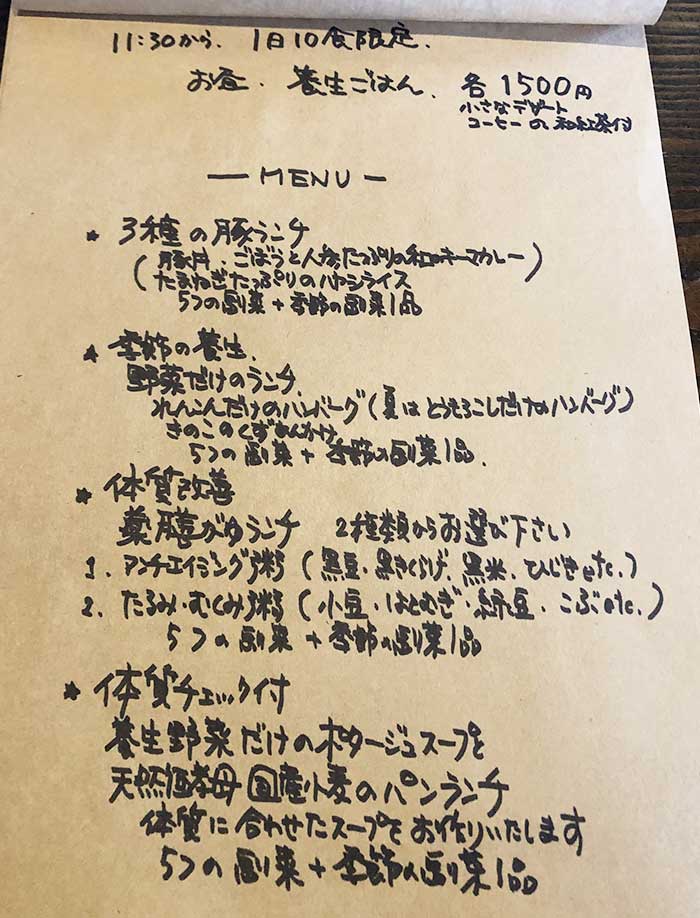 11:30から. 1日10食限定.
お昼. 養生ごはん. 各1500円
小さなデザート
コーヒー or 和紅茶付
— MENU —
* 3種の豚ランチ
(豚丼・ごぼうと人参たっぷりの和キーマカレー)
(たまねぎたっぷりのハヤシライス
5つの副菜+季節の副菜1品
* 季節の養生.
野菜だけのランチ.
れんこんだけのハンバーグ(夏はとうもろこしだけのハンバーグ)
きのこのくずあんかけ
5つの副菜+季節の副菜1品.
* 体質改善
薬膳がゆランチ 2種類からお選び下さい
1. アンチエイジング粥(黒豆・黒きくらげ.黒米.ひじきetc.)
2. たるみ・むくみ粥(小豆・はとむぎ・緑豆・こぶetc.)
5つの副菜+季節の副菜1品
* 体質チェック付
養生野菜だけのポタージュスープを
天然酵母国産小麦のパンランチ
体質に合わせたスープをお作りいたします
5つの副菜+季節の副菜1品